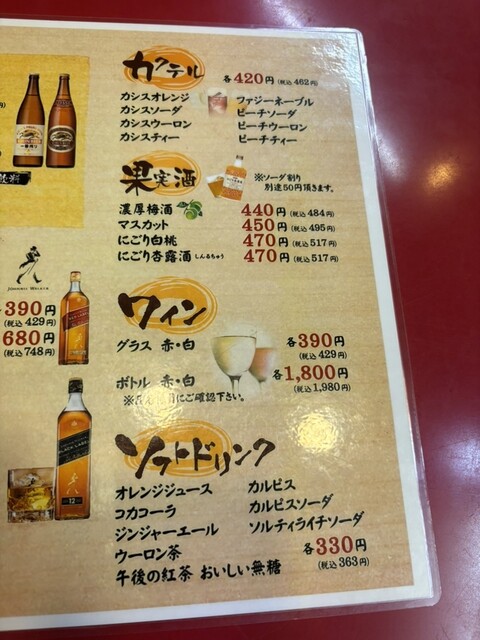 カクテル 各420円(税込462円)
カシスオレンジ ファジーネーブル
カシスソーダ ピーチソーダ
カシスウーロン ピーチウーロン
カシスティー ピーチティー
果実酒 ※ソーダ割り
別途50円頂きます。
濃厚梅酒 440円(税込484円)
マスカット 450円(税込495円)
にごり白桃 470円(税込517円)
にごり杏露酒(しんるちゅう) 470円(税込517円)
JOHNNIE WALKER
390円
(税込429円)
680円
(税込748円)
ワイン
グラス 赤・白 各390円
(税込429円)
ボトル 赤・白 各1,800円
(税込1,980円)
にご確認下さい。
ソフトドリンク
オレンジジュース カルピス
コカコーラ カルピスソーダ
ジンジャーエール ソルティライチソーダ
ウーロン茶 各330円
午後の紅茶 おいしい無糖 (税込363円)